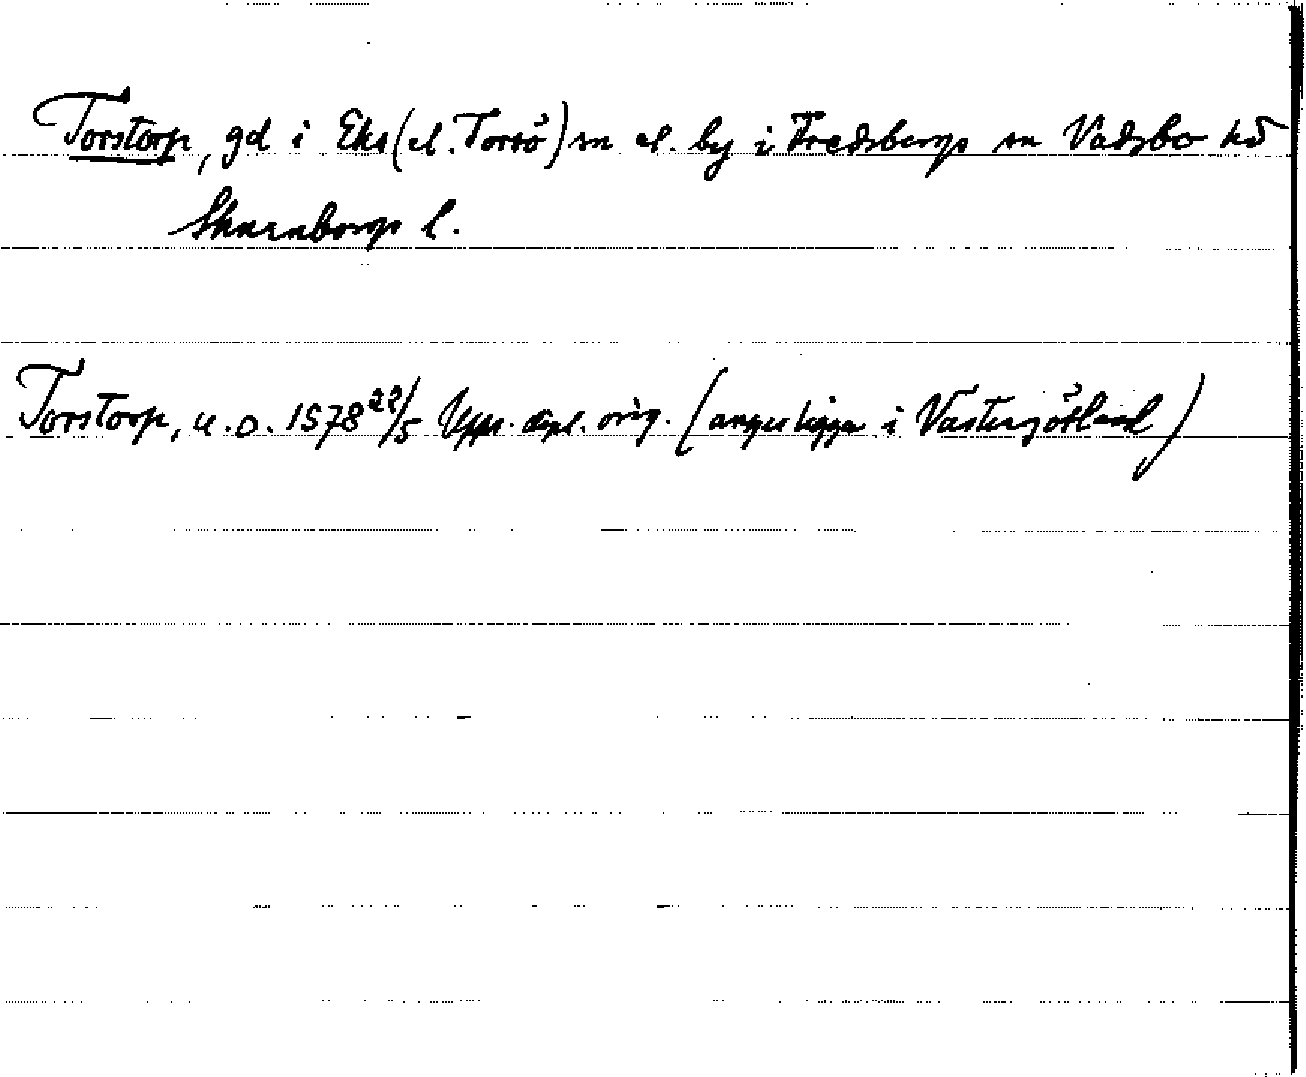 Torstorp, gd i Eks (el. Torsö) sn el. by i Fredsbergs sn Vadsbo hd
Skaraborgs l.
Torstorp, u.o. 1578 22/5 Upps. dipl. orig. (anges ligga i Västergötland)